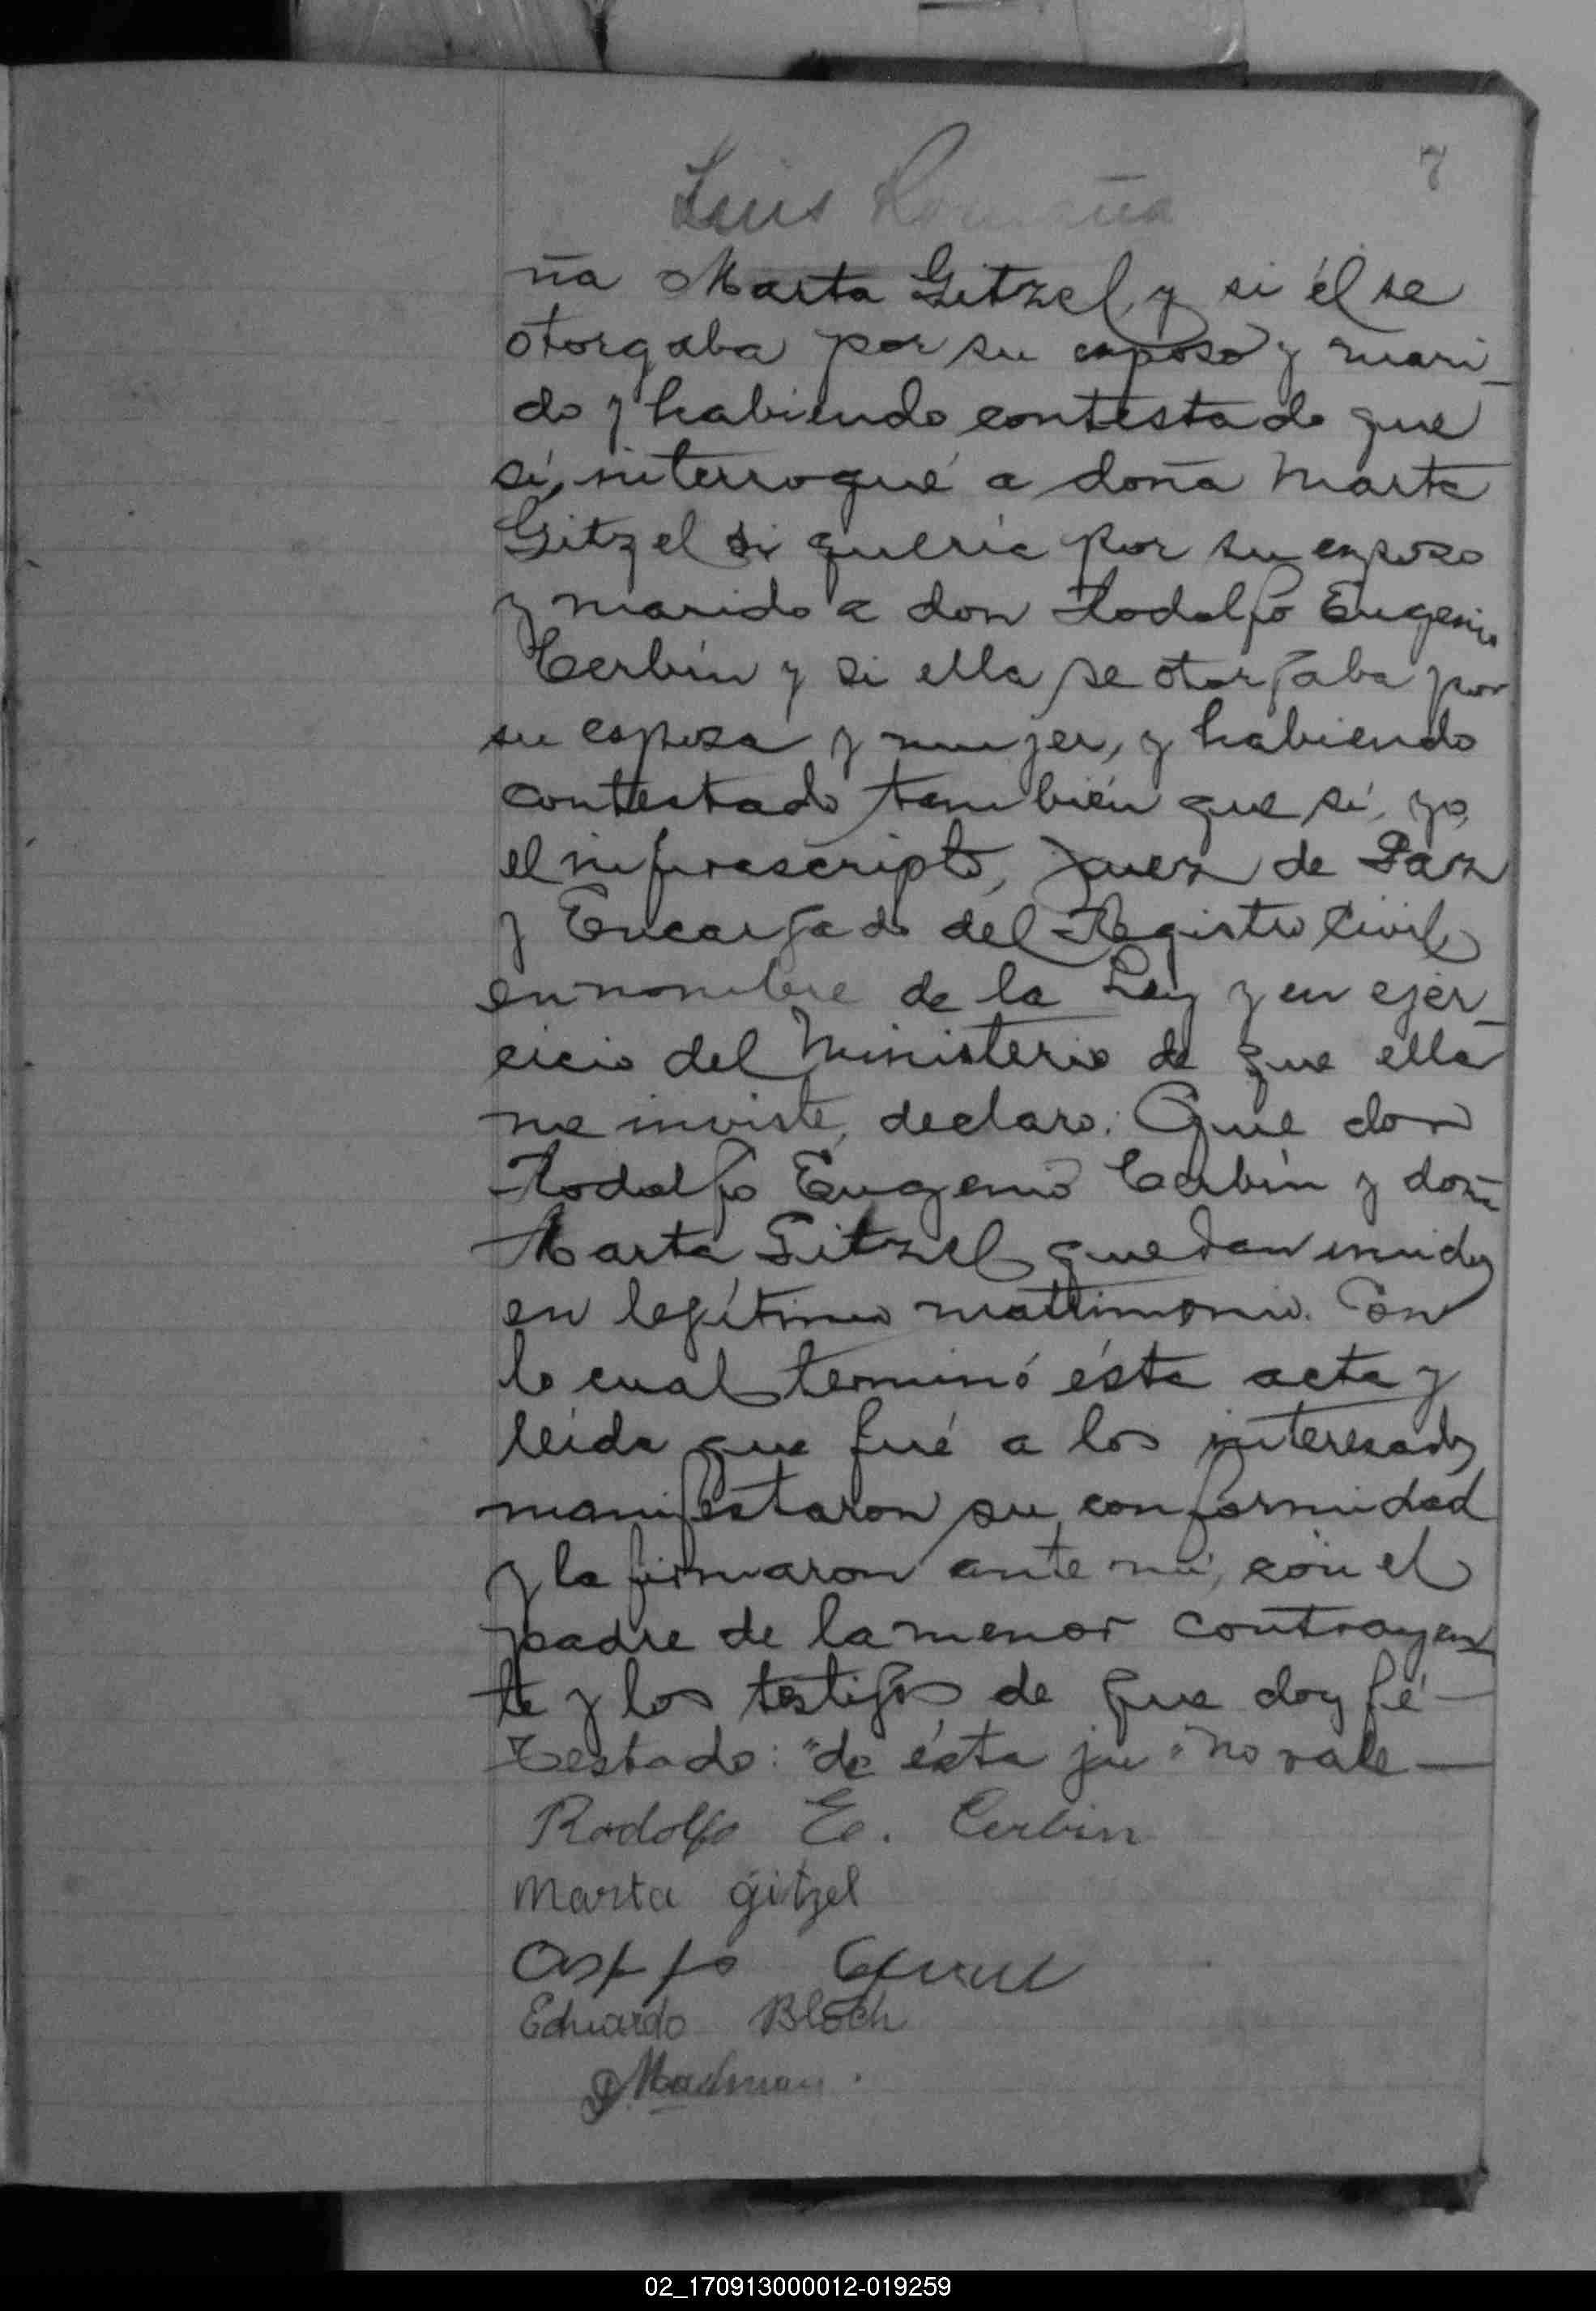 7
Luis Romaña
ña Marta Gitzel y si él se
otorgaba por su esposo y mari_
do y habiendo contestado que
sí, interrogué a doña Marta
Gitzel si quería por su esposo
y marido a don Rodolfo Eugenio
Cerbín y si ella se otorgaba por
su esposa y mujer, y habiendo
contestado también que sí, yo,
el infrascripto, Juez de Paz
y Encargado del Registro Civil
en nombre de la Ley y en ejer_
cicio del Ministerio de que ella
me inviste, declaro: Que don
Rodolfo Eugenio Cerbín y doña
Marta Gitzel quedan unidos
en legítimo matrimonio. Con
lo cual terminó ésta acta y
leída que fué a los interesados
manifestaron su conformidad
y la firmaron ante mí, con el
padre de la menor contrayen
te y los testigos de que doy fé—
Testado: "de ésta ju" no vale—
Rodolfo E. Cerbin
Marta gitzel
Eduardo Bloch
02_170913000012-019259